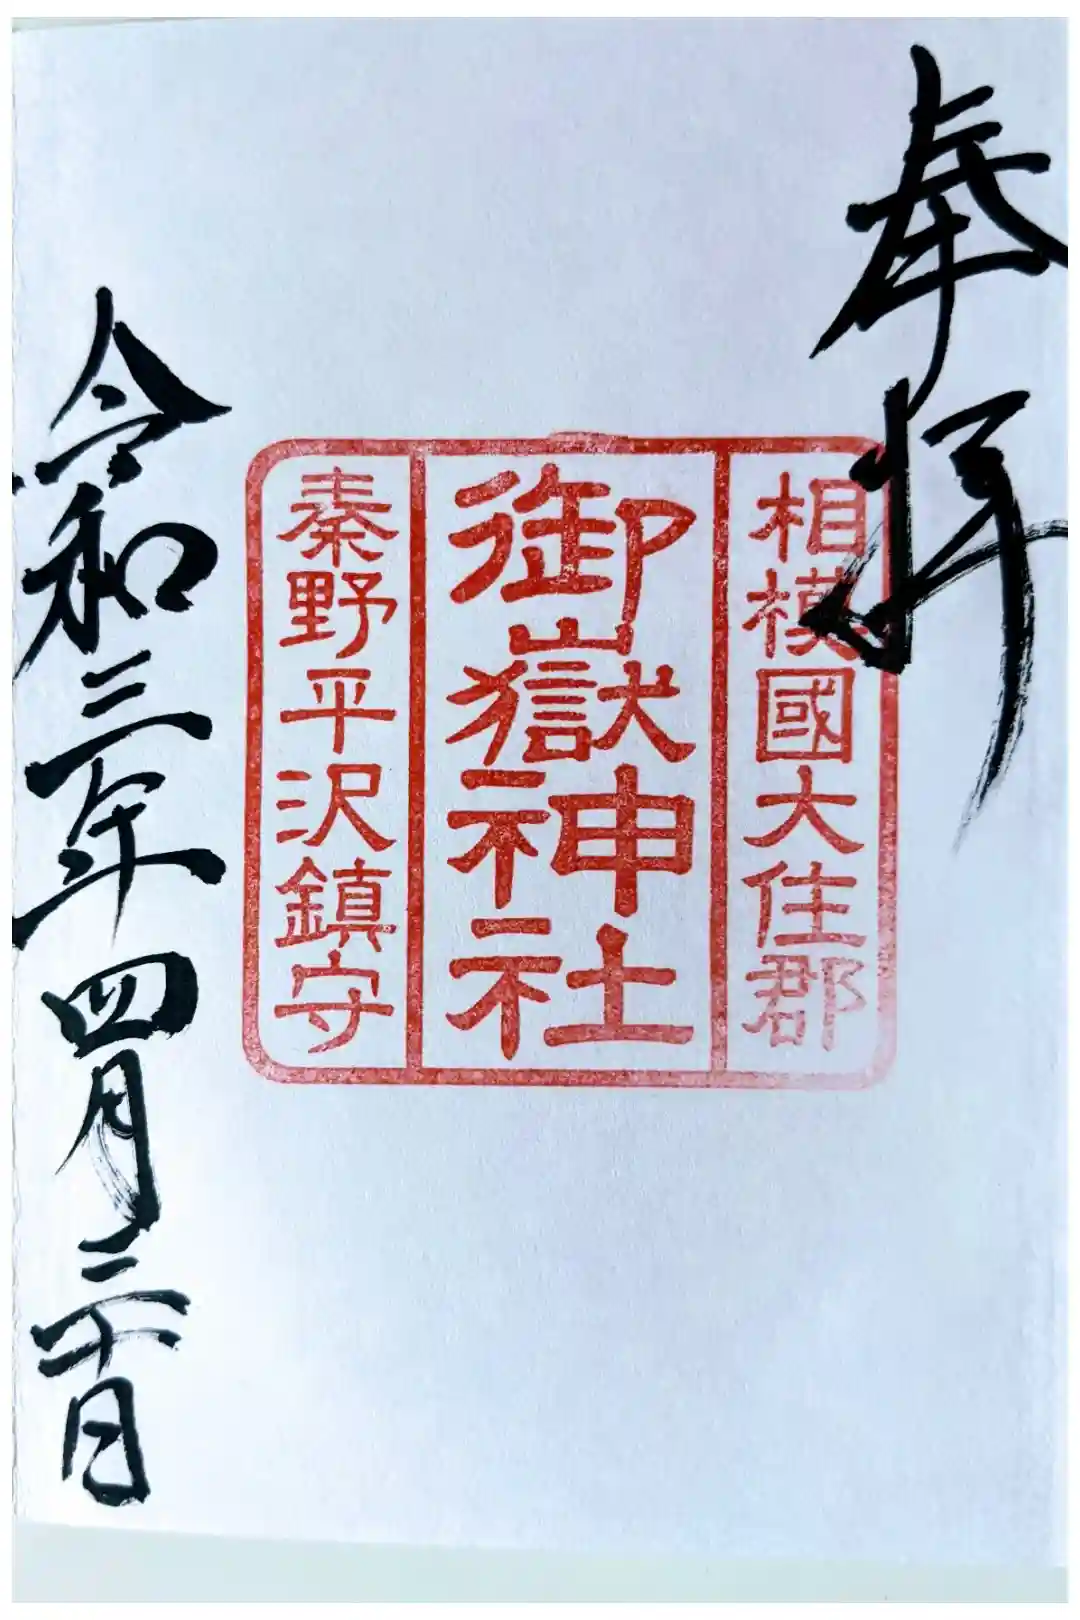 奉拝
相模國大住郡
御嶽神社
秦野平沢鎮守
令和三年四月三十日